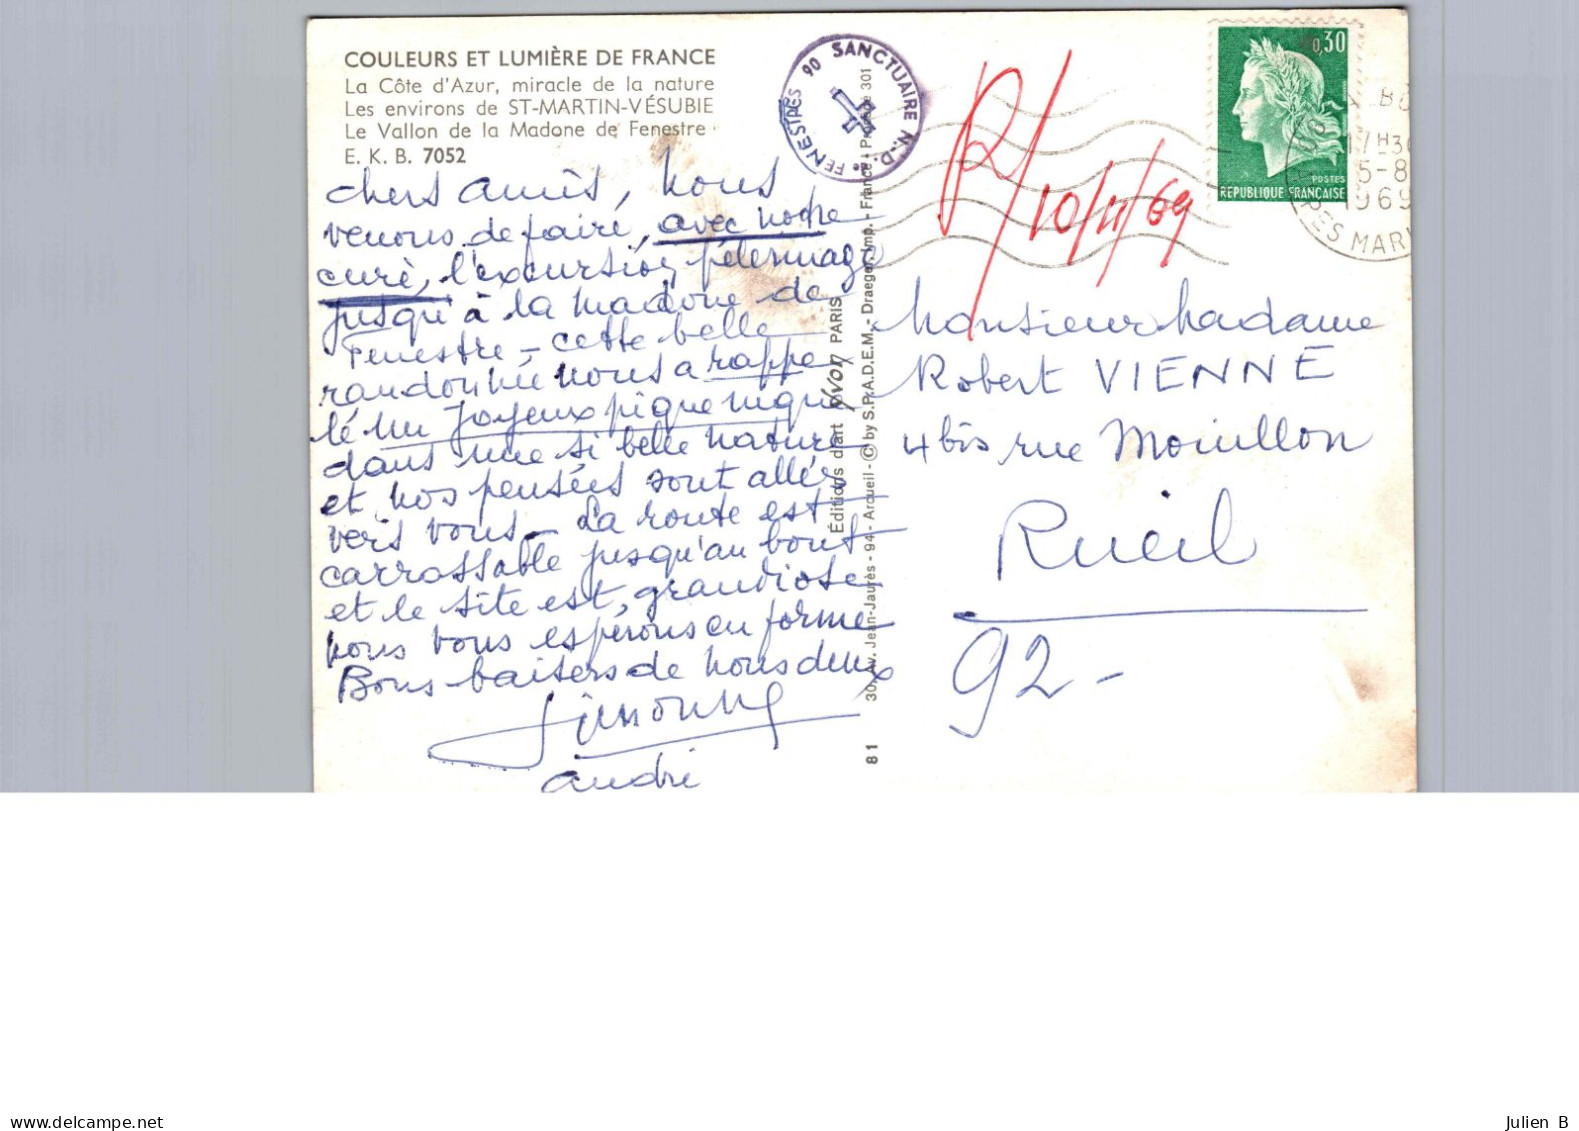 COULEURS ET LUMIÈRE DE FRANCE
La Côte d'Azur, miracle de la nature
Les environs de ST-MARTIN-VÉSUBIE
Le Vallon de la Madone de Fenestre
E. K. B. 7052
chers amis, nous
venons de faire, avec notre
curé, l'excursion pélerinage
jusqu'à la madone de
Fenestre - cette belle
randonnée nous a rappe
lé un joyeux pique nique
dans une si belle nature
et nos pensées sont allés
vers vous - La route est
carrossable jusqu'au bout
et le site est, grandiose
nous vous espérons en forme
Bons baisers de nous deux
Simonne
andré
SANCTUAIRE N.-D. de FENESTRES 06
Éditions d'art YVON PARIS
30, Av. Jean-Jaurès - 94 - Arcueil - © by S.P.A.D.E.M. - Draeger Imp. - France - Procédé 301
81
R/ 10/11/69
0,30
POSTES
REPUBLIQUE FRANÇAISE
17H30
5-8
1969
PES MAR
Monsieur Madame
Robert VIENNE
4 bis rue Mouillon
Rueil
92 -
www.delcampe.net
Julien B